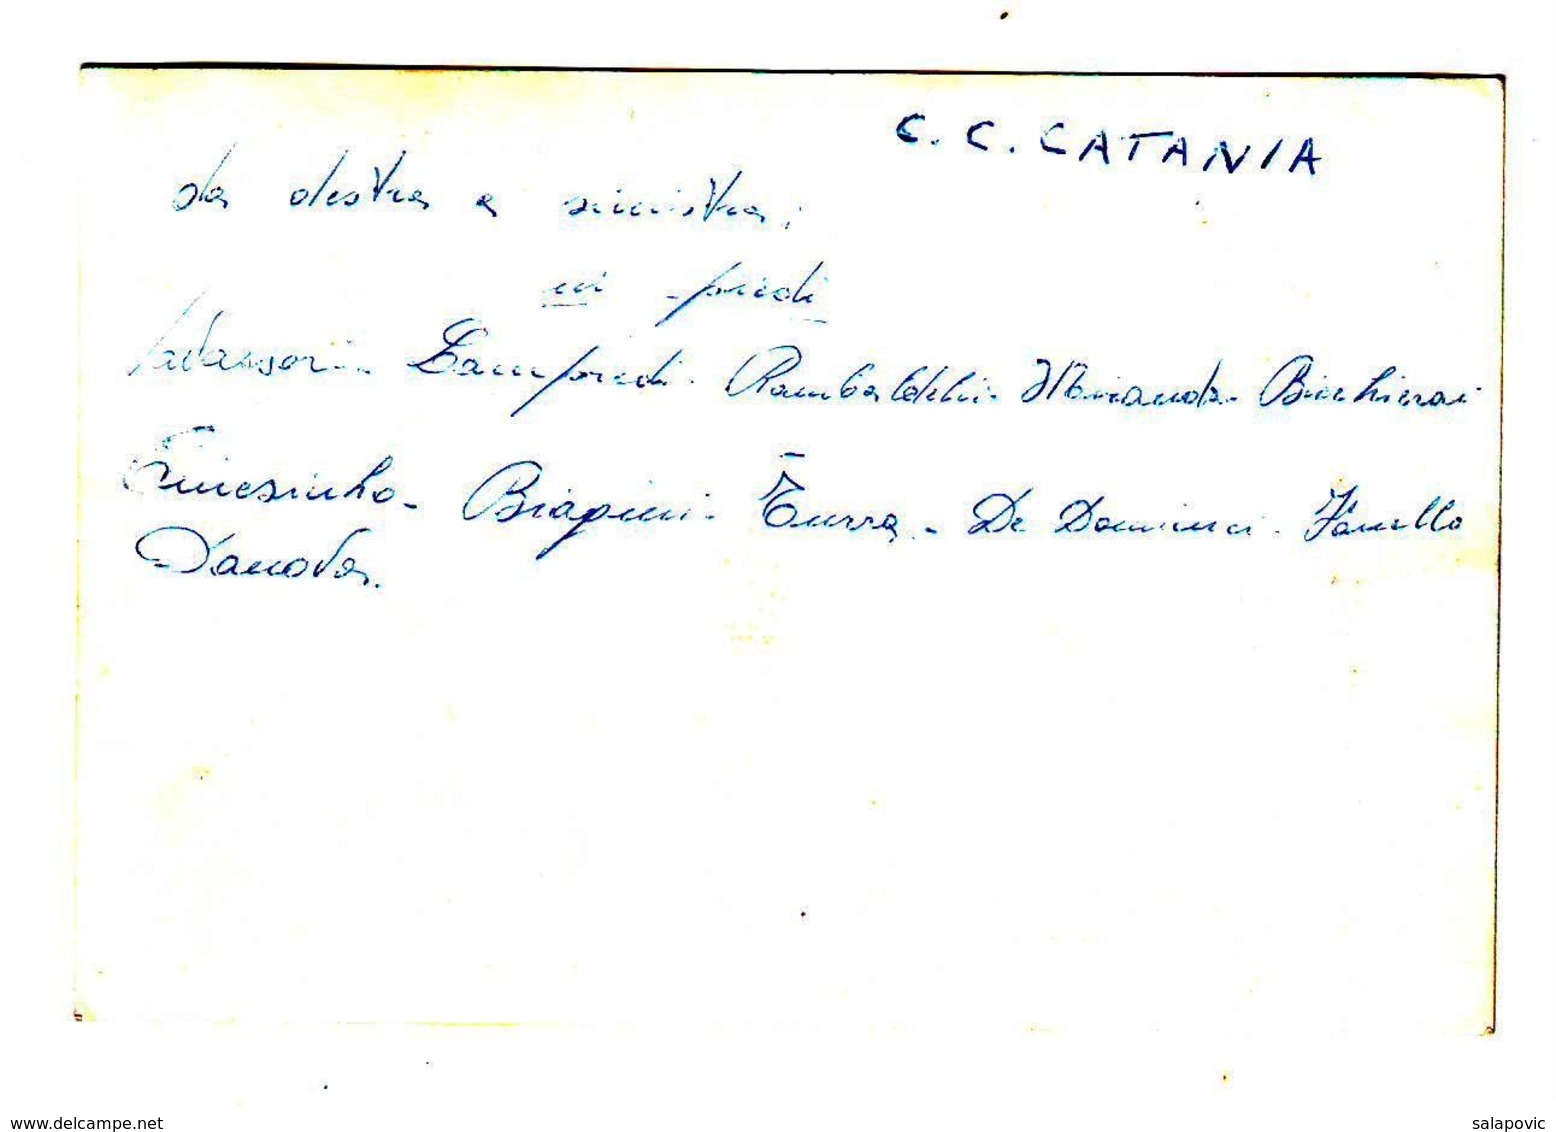 C. C. CATANIA
da destra a sinistra;
in piedi
Vavassori - Lampredi - Rambaldelli - Miranda - Bicchierai
Cinesinho - Biagini - Turra - De Dominici - Fanello
Danova.
www.delcampe.net
salapovic